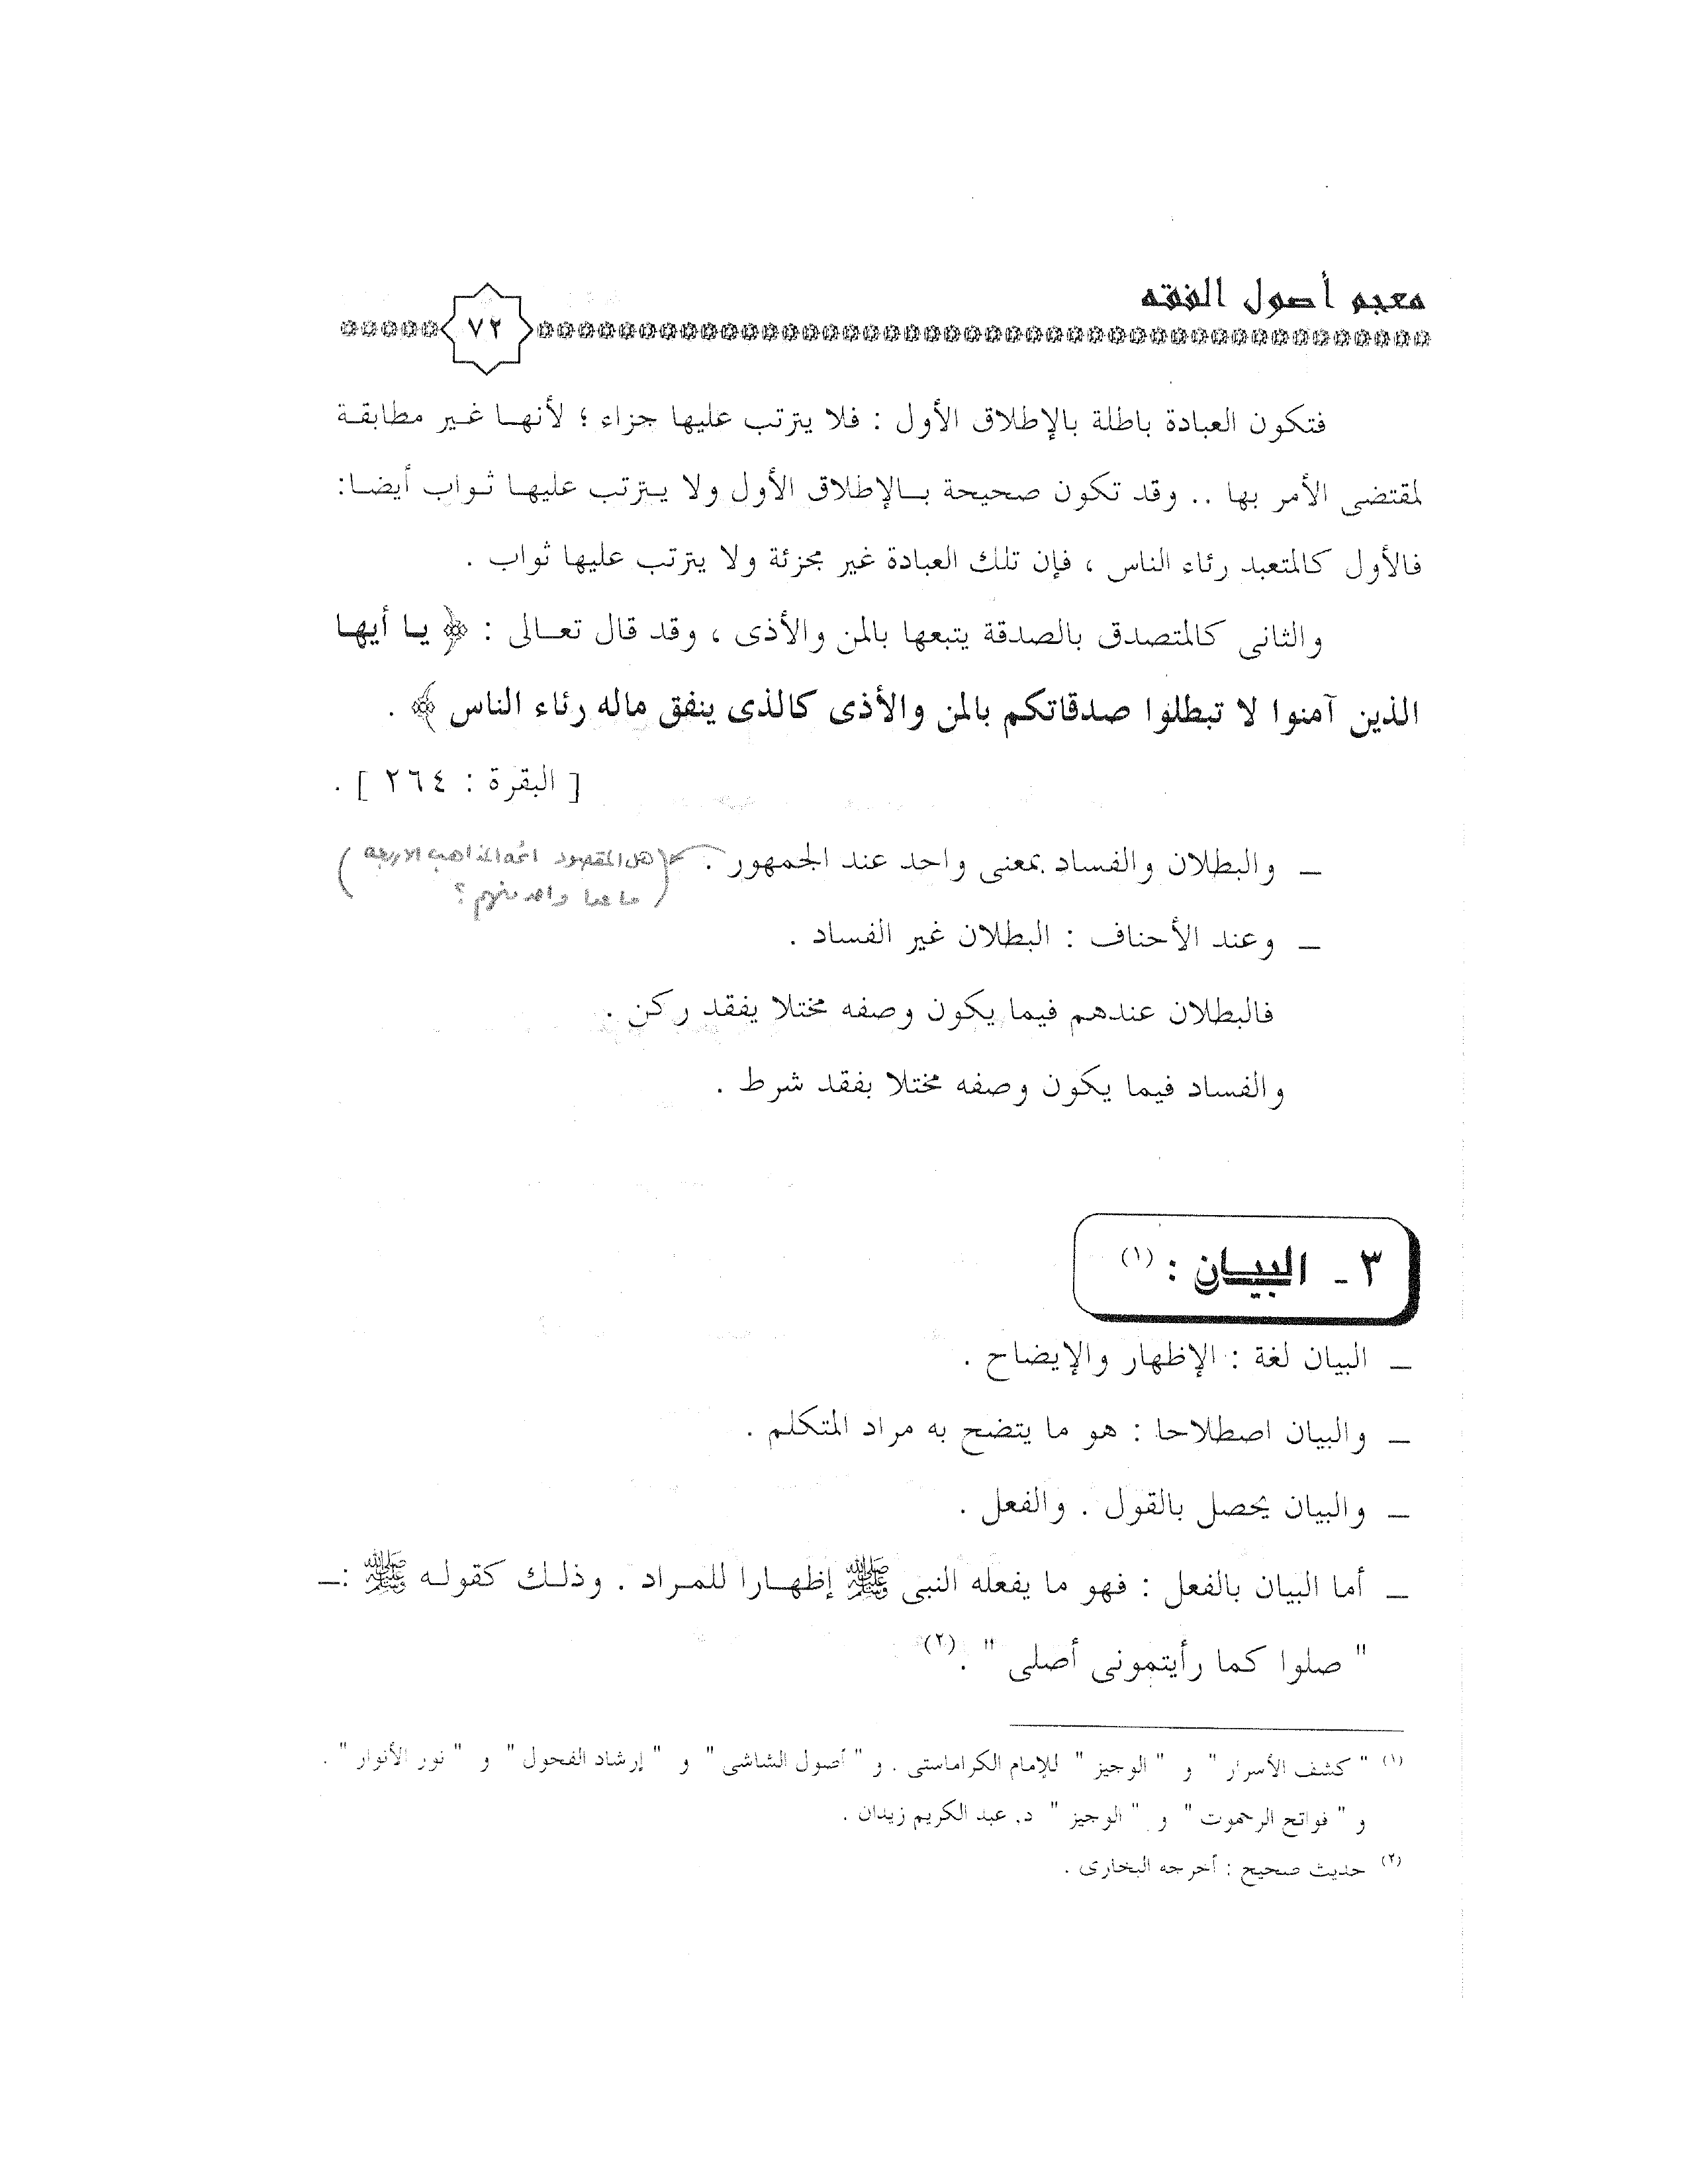 معجم أصول الفقه
٧٢
فتكون العبادة باطلة بالإطلاق الأول : فلا يترتب عليها جزاء ؛ لأنهـا غـير مطابقـة
لمقتضى الأمر بها .. وقد تكون صحيحة بـالإطلاق الأول ولا يـترتب عليهـا ثـواب أيضـا:
فالأول كالمتعبد رئاء الناس ، فإن تلك العبادة غير مجزئة ولا يترتب عليها ثواب .
والثانى كالمتصدق بالصدقة يتبعها بالمن والأذى ، وقد قال تعـالى : ﴿ يـا أيهـا
الذين آمنوا لا تبطلوا صدقاتكم بالمن والأذى كالذى ينفق ماله رئاء الناس ﴾ .
[ البقرة : ٢٦٤ ] .
ــ والبطلان والفساد بمعنى واحد عند الجمهور .
(هل المقصود ائمة المذاهب الاربعه
ما عدا واحد منهم ؟)
ــ وعند الأحناف : البطلان غير الفساد .
فالبطلان عندهم فيما يكون وصفه مختلا يفقد ركن .
والفساد فيما يكون وصفه مختلا بفقد شرط .
٣ ـ البيـان : (١)
ــ البيان لغة : الإظهار والإيضاح .
ــ والبيان اصطلاحا : هو ما يتضح به مراد المتكلم .
ــ والبيان يحصل بالقول . والفعل .
ــ أما البيان بالفعل : فهو ما يفعله النبى ﷺ إظهـارا للمـراد . وذلـك كقولـه ﷺ :ــ
" صلوا كما رأيتمونى أصلى " .(٢)
(١) " كشف الأسرار " و " الوجيز " للإمام الكراماستى . و " أصول الشاشى " و " إرشاد الفحول " و " نور الأنوار " .
و " فواتح الرحموت " و " الوجيز " د. عبد الكريم زيدان .
(٢) حديث صحيح : أخرجه البخارى .